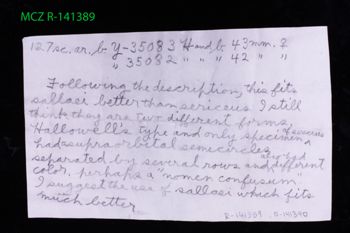 MCZ R-141389
12.7 sc. ar. b Y-35083 H and b 43 mm. ♀
" 35082 " " " 42 " "
Following the description, this fits
sallasi better than sericeus I still
think they are two different forms,
Hallowell's type and only specimen of sericeus
had supraorbital semicircles
separated by several rows and different
color. perhaps a "nomen confusum"
I suggest the use of sallasi which fits
much better
R-141389 R-141390